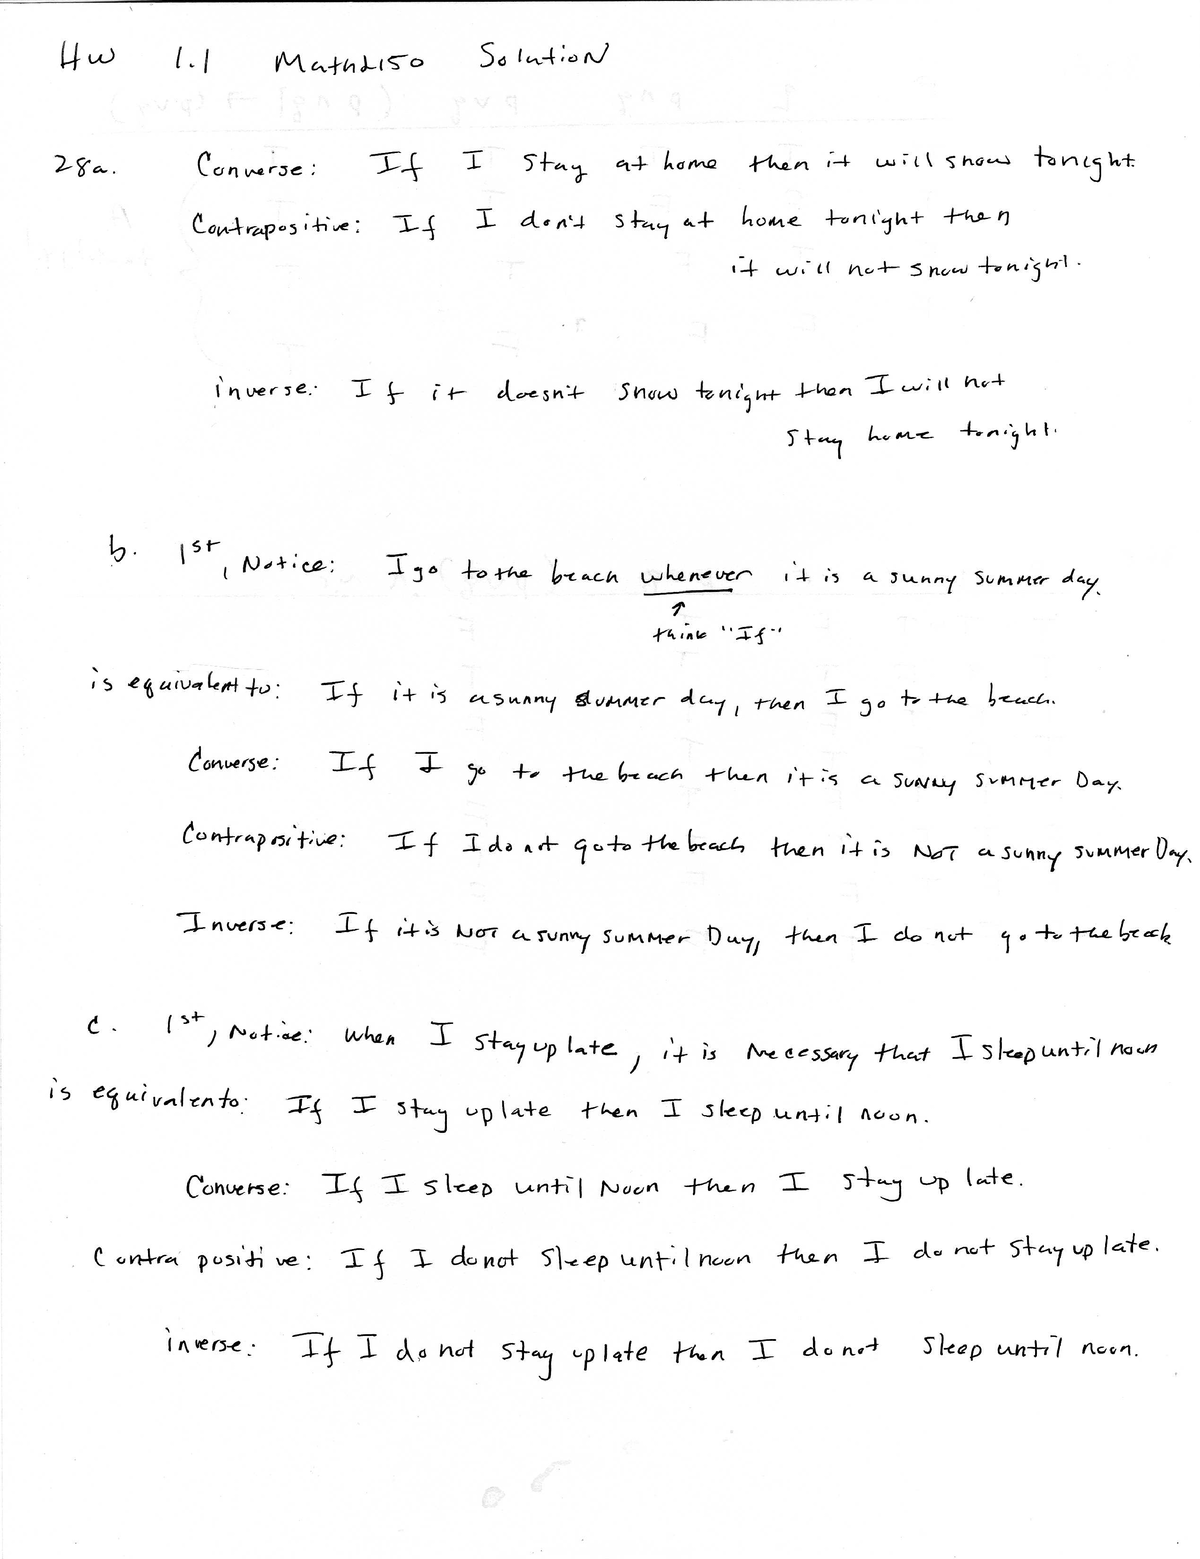 HW 1.1 Math2150 Solution
28a. Converse: If I stay at home then it will snow tonight.
Contrapositive: If I don't stay at home tonight then
it will not snow tonight.
inverse: If it doesn't snow tonight then I will not
stay home tonight.
b. 1st, Notice: I go to the beach whenever it is a sunny summer day.
↑
think "If"
is equivalent to: If it is a sunny summer day, then I go to the beach.
Converse: If I go to the beach then it is a sunny summer Day.
Contrapositive: If I do not go to the beach then it is NOT a sunny summer Day.
Inverse: If it is NOT a sunny summer Day, then I do not go to the beach
c. 1st, Notice: When I stay up late, it is necessary that I sleep until noon
is equivalento: If I stay up late then I sleep until noon.
Converse: If I sleep until Noon then I stay up late.
Contra positive: If I do not sleep until noon then I do not stay up late.
inverse: If I do not stay up late then I do not sleep until noon.